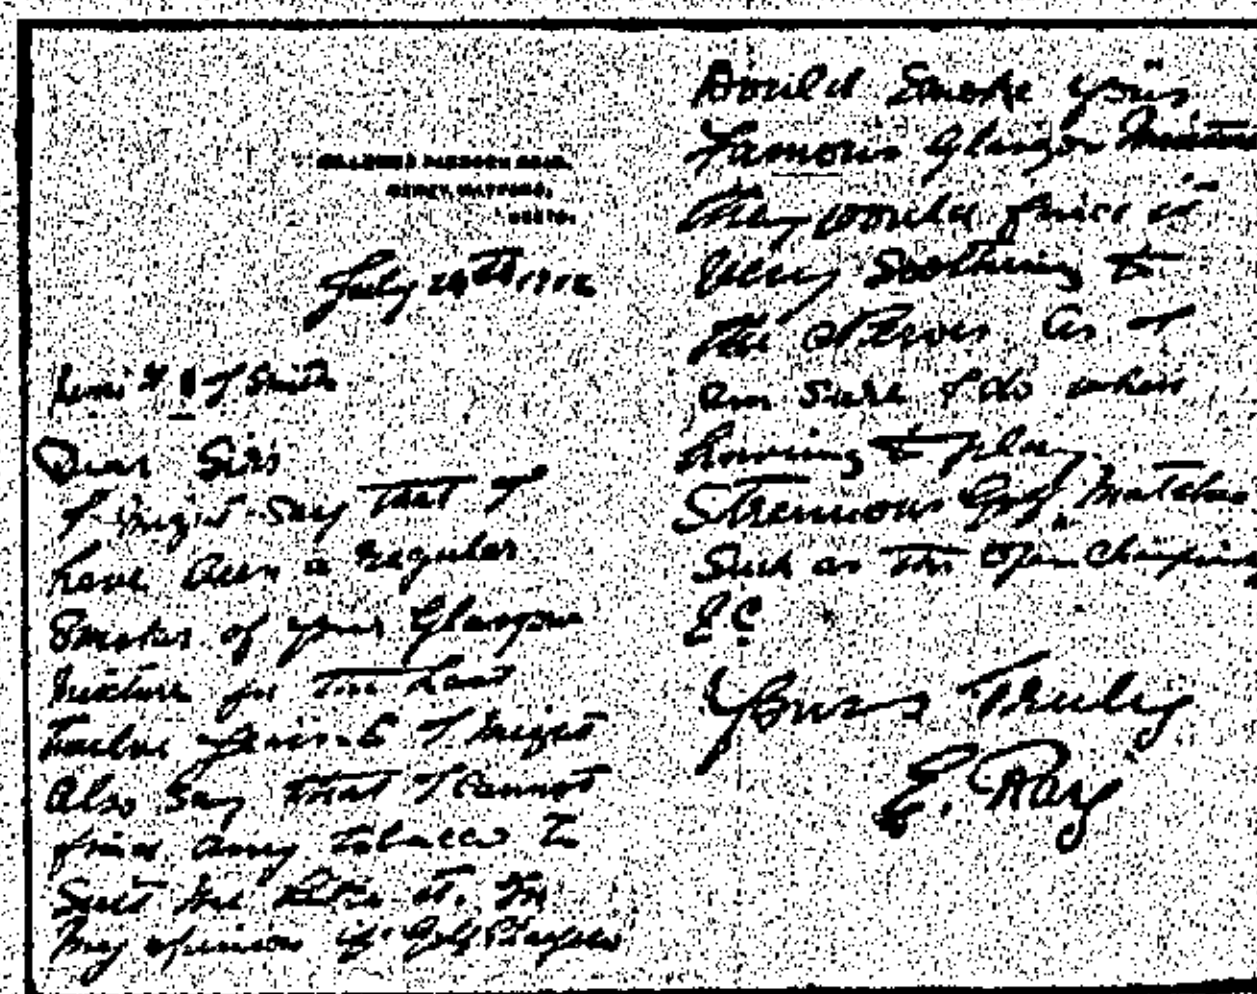 July 24th 1912
F & J Smith
Dear Sirs
I might say that I
have been a regular
Smoker of your Glasgow
Mixture for the last
Twelve years & I might
Also Say that I cannot
find any tobacco to
Suit me like it. In
my opinion if Golf Players
Would Smoke your
Famous Glasgow Mixture
they would find it
Very Soothing to
the Nerves as I
am sure I do when
having to play
Strenuous Golf Matches
Such as the Open Championship
Yours Truly
E. Ray